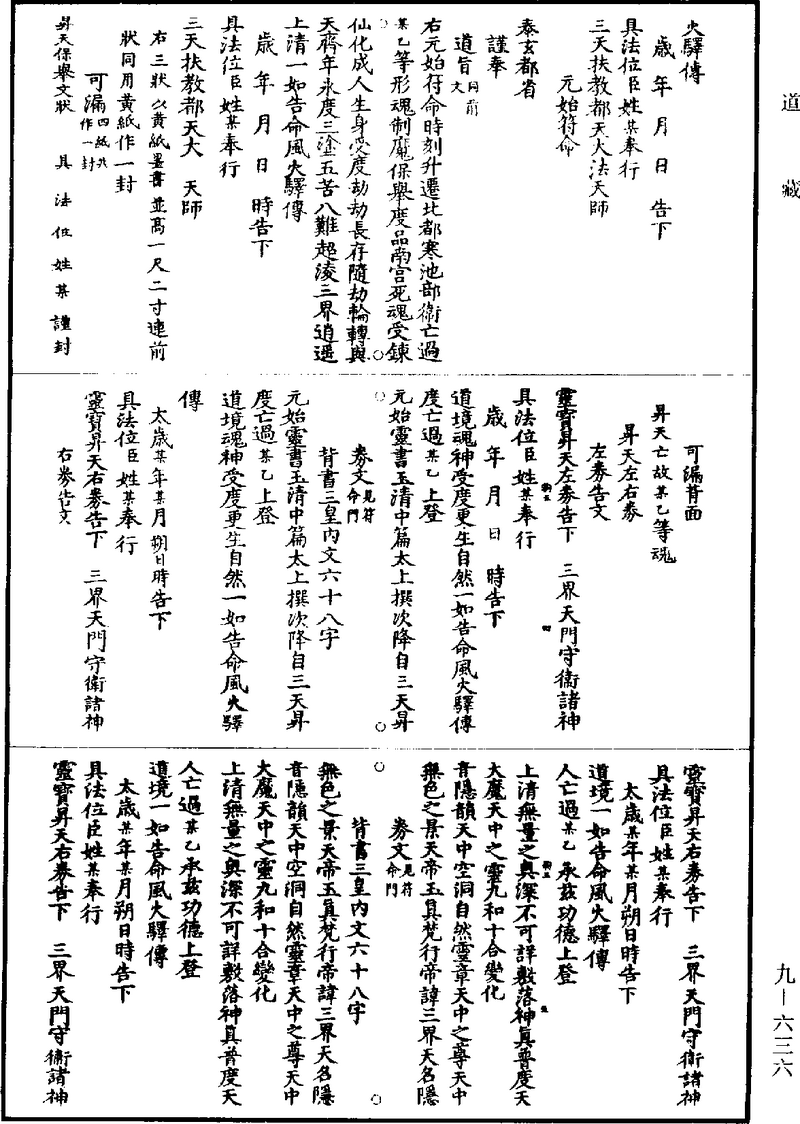 道藏
火驛傳
歲年月日告下
具法位臣姓某奉行
三天扶教都天大法天師
元始符命
泰玄都省
謹奉
道旨同前文
右元始符命時刻升遷北都寒池部衛亡過
某乙等形魂制魔保舉度品南宮死魂受鍊
仙化成人生身受度劫劫長存隨劫輪轉與
天齊年永度三塗五苦八難超淩三界逍遥
上清一如告命風火驛傳
歲年月日時告下
具法位臣姓某奉行
三天扶教都天大天師
右三狀以黄紙墨書並高一尺二寸連前
狀同用黄紙作一封
可漏四紙共作一封
昇天保舉文狀具法位姓某謹封
可漏背面
昇天亡故某乙等魂
昇天左右券
左券告文
靈寶昇天左券告下三界天門守衛諸神
具法位臣姓某奉行
歲年月日時告下
道境魂神受度更生自然一如告命風火驛傳
度亡過某乙上登
元始靈書玉清中篇太上撰次降自三天昇
券文見符命門
背書三皇内文六十八字
元始靈書玉清中篇太上撰次降自三天昇
度亡過某乙上登
道境魂神受度更生自然一如告命風火驛
傳
太歲某年某月朔日時告下
具法位臣姓某奉行
靈寶昇天右券告下三界天門守衛諸神
右券告文
靈寶昇天右券告下三界天門守衛諸神
具法位臣姓某奉行
太歲某年某月朔日時告下
道境一如告命風火驛傳
人亡過某乙承茲功德上登
上清無量之奥深不可詳敷落神真普度天
大魔天中之靈九和十合變化
音隱韻天中空洞自然靈章天中之尊天中
無色之景天帝玉真梵行帝諱三界天名隱
券文見符命門
背書三皇内文六十八字
無色之景天帝玉真梵行帝諱三界天名隱
音隱韻天中空洞自然靈章天中之尊天中
大魔天中之靈九和十合變化
上清無量之奥深不可詳敷落神真普度天
人亡過某乙承茲功德上登
道境一如告命風火驛傳
太歲某年某月朔日時告下
具法位臣姓某奉行
靈寶昇天右券告下三界天門守衛諸神
九—六三六